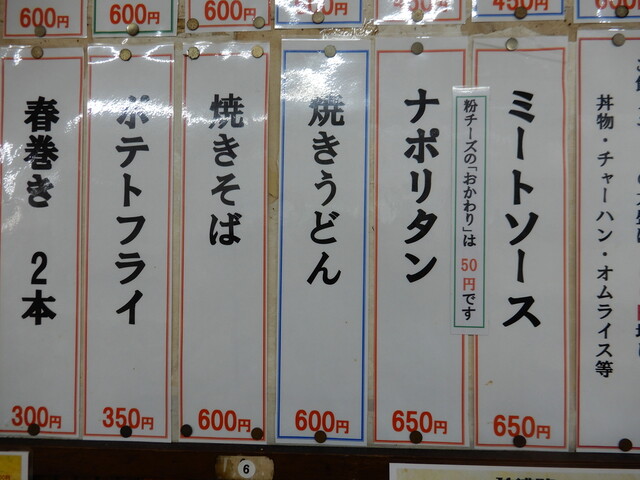 丼物・チャーハン・オムライス等
ミートソース
650円
粉チーズの「おかわり」は 50円です
ナポリタン
650円
焼きうどん
600円
焼きそば
600円
ポテトフライ
350円
春巻き 2本
300円
450円
600円
600円
600円
6